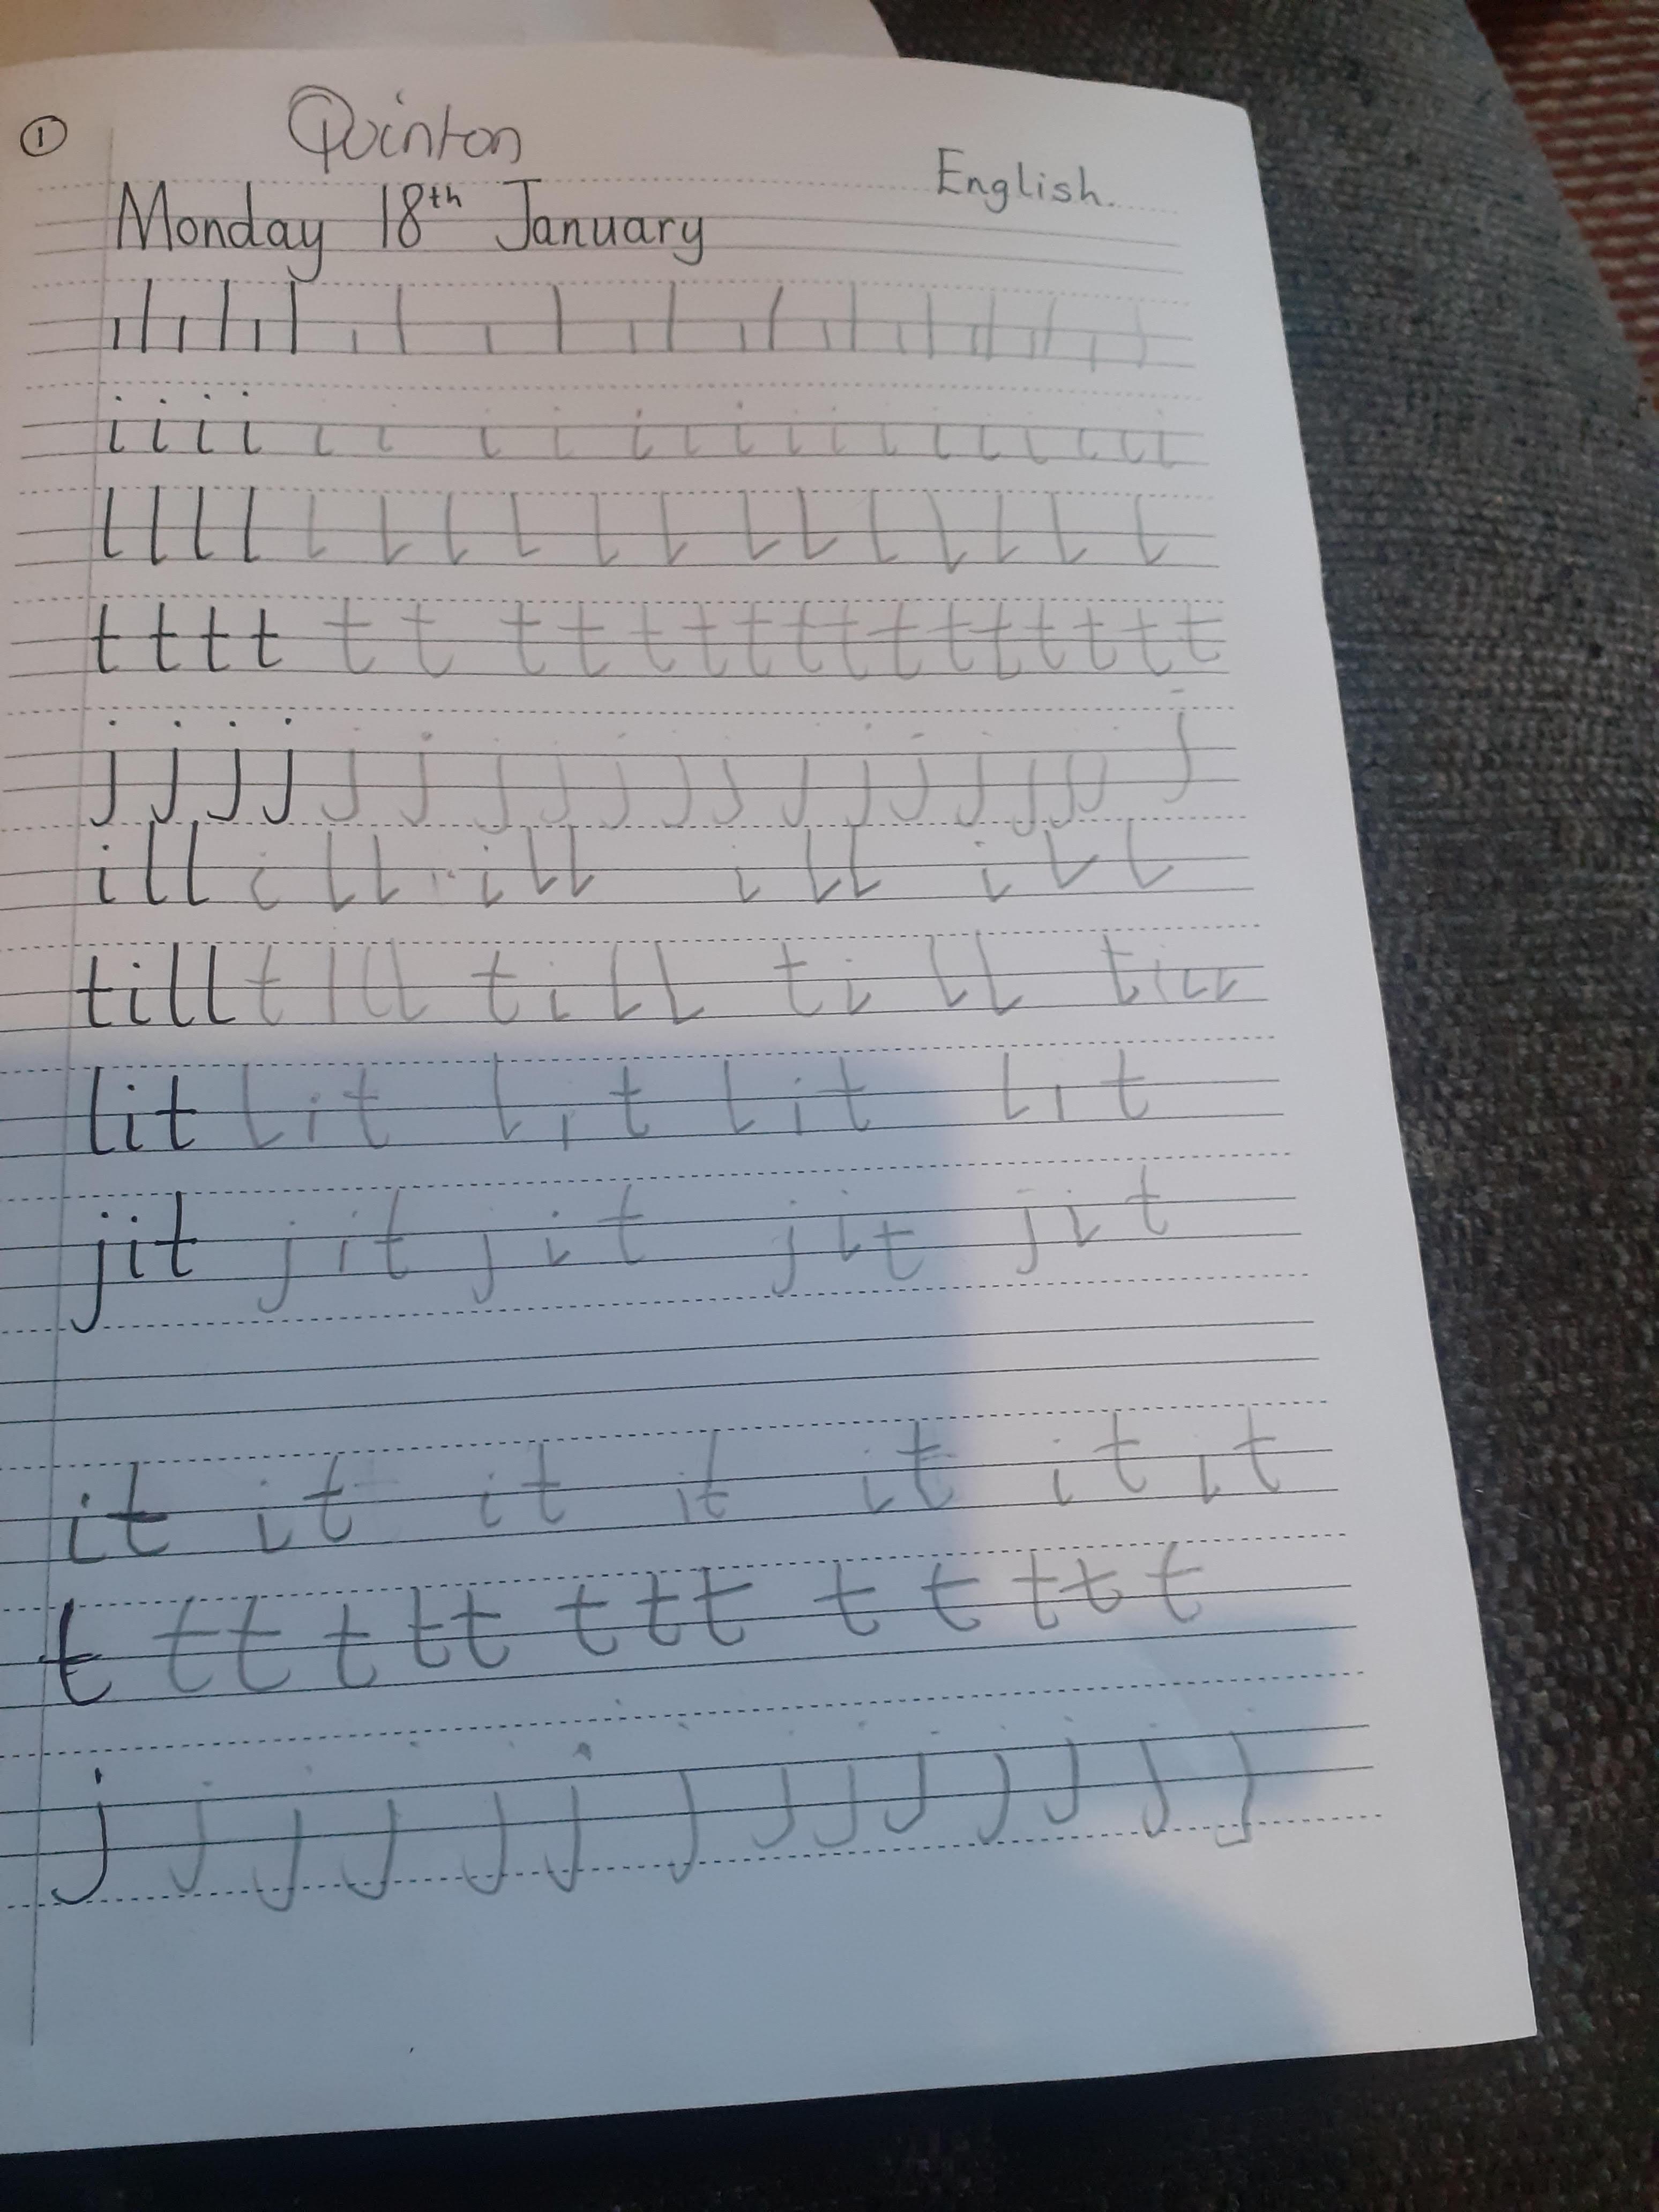 ① Quinton
English.
Monday 18th January
ı l ı l ı l ı l ı l ı l ı l ı l ı l ı l ı l ı l
i i i i i i i i i i i i i i i i i i
l l l l l l l l l l l l l l l l l
t t t t t t t t t t t t t t t t t t
j j j j j j j j j j j j j j j j j j
ill ill ill ill ill
till till till till till
lit lit lit lit lit
jit jit jit jit jit
it it it it it it it
t t t t t t t t t t t t t t
j j j j j j j j j j j j j j